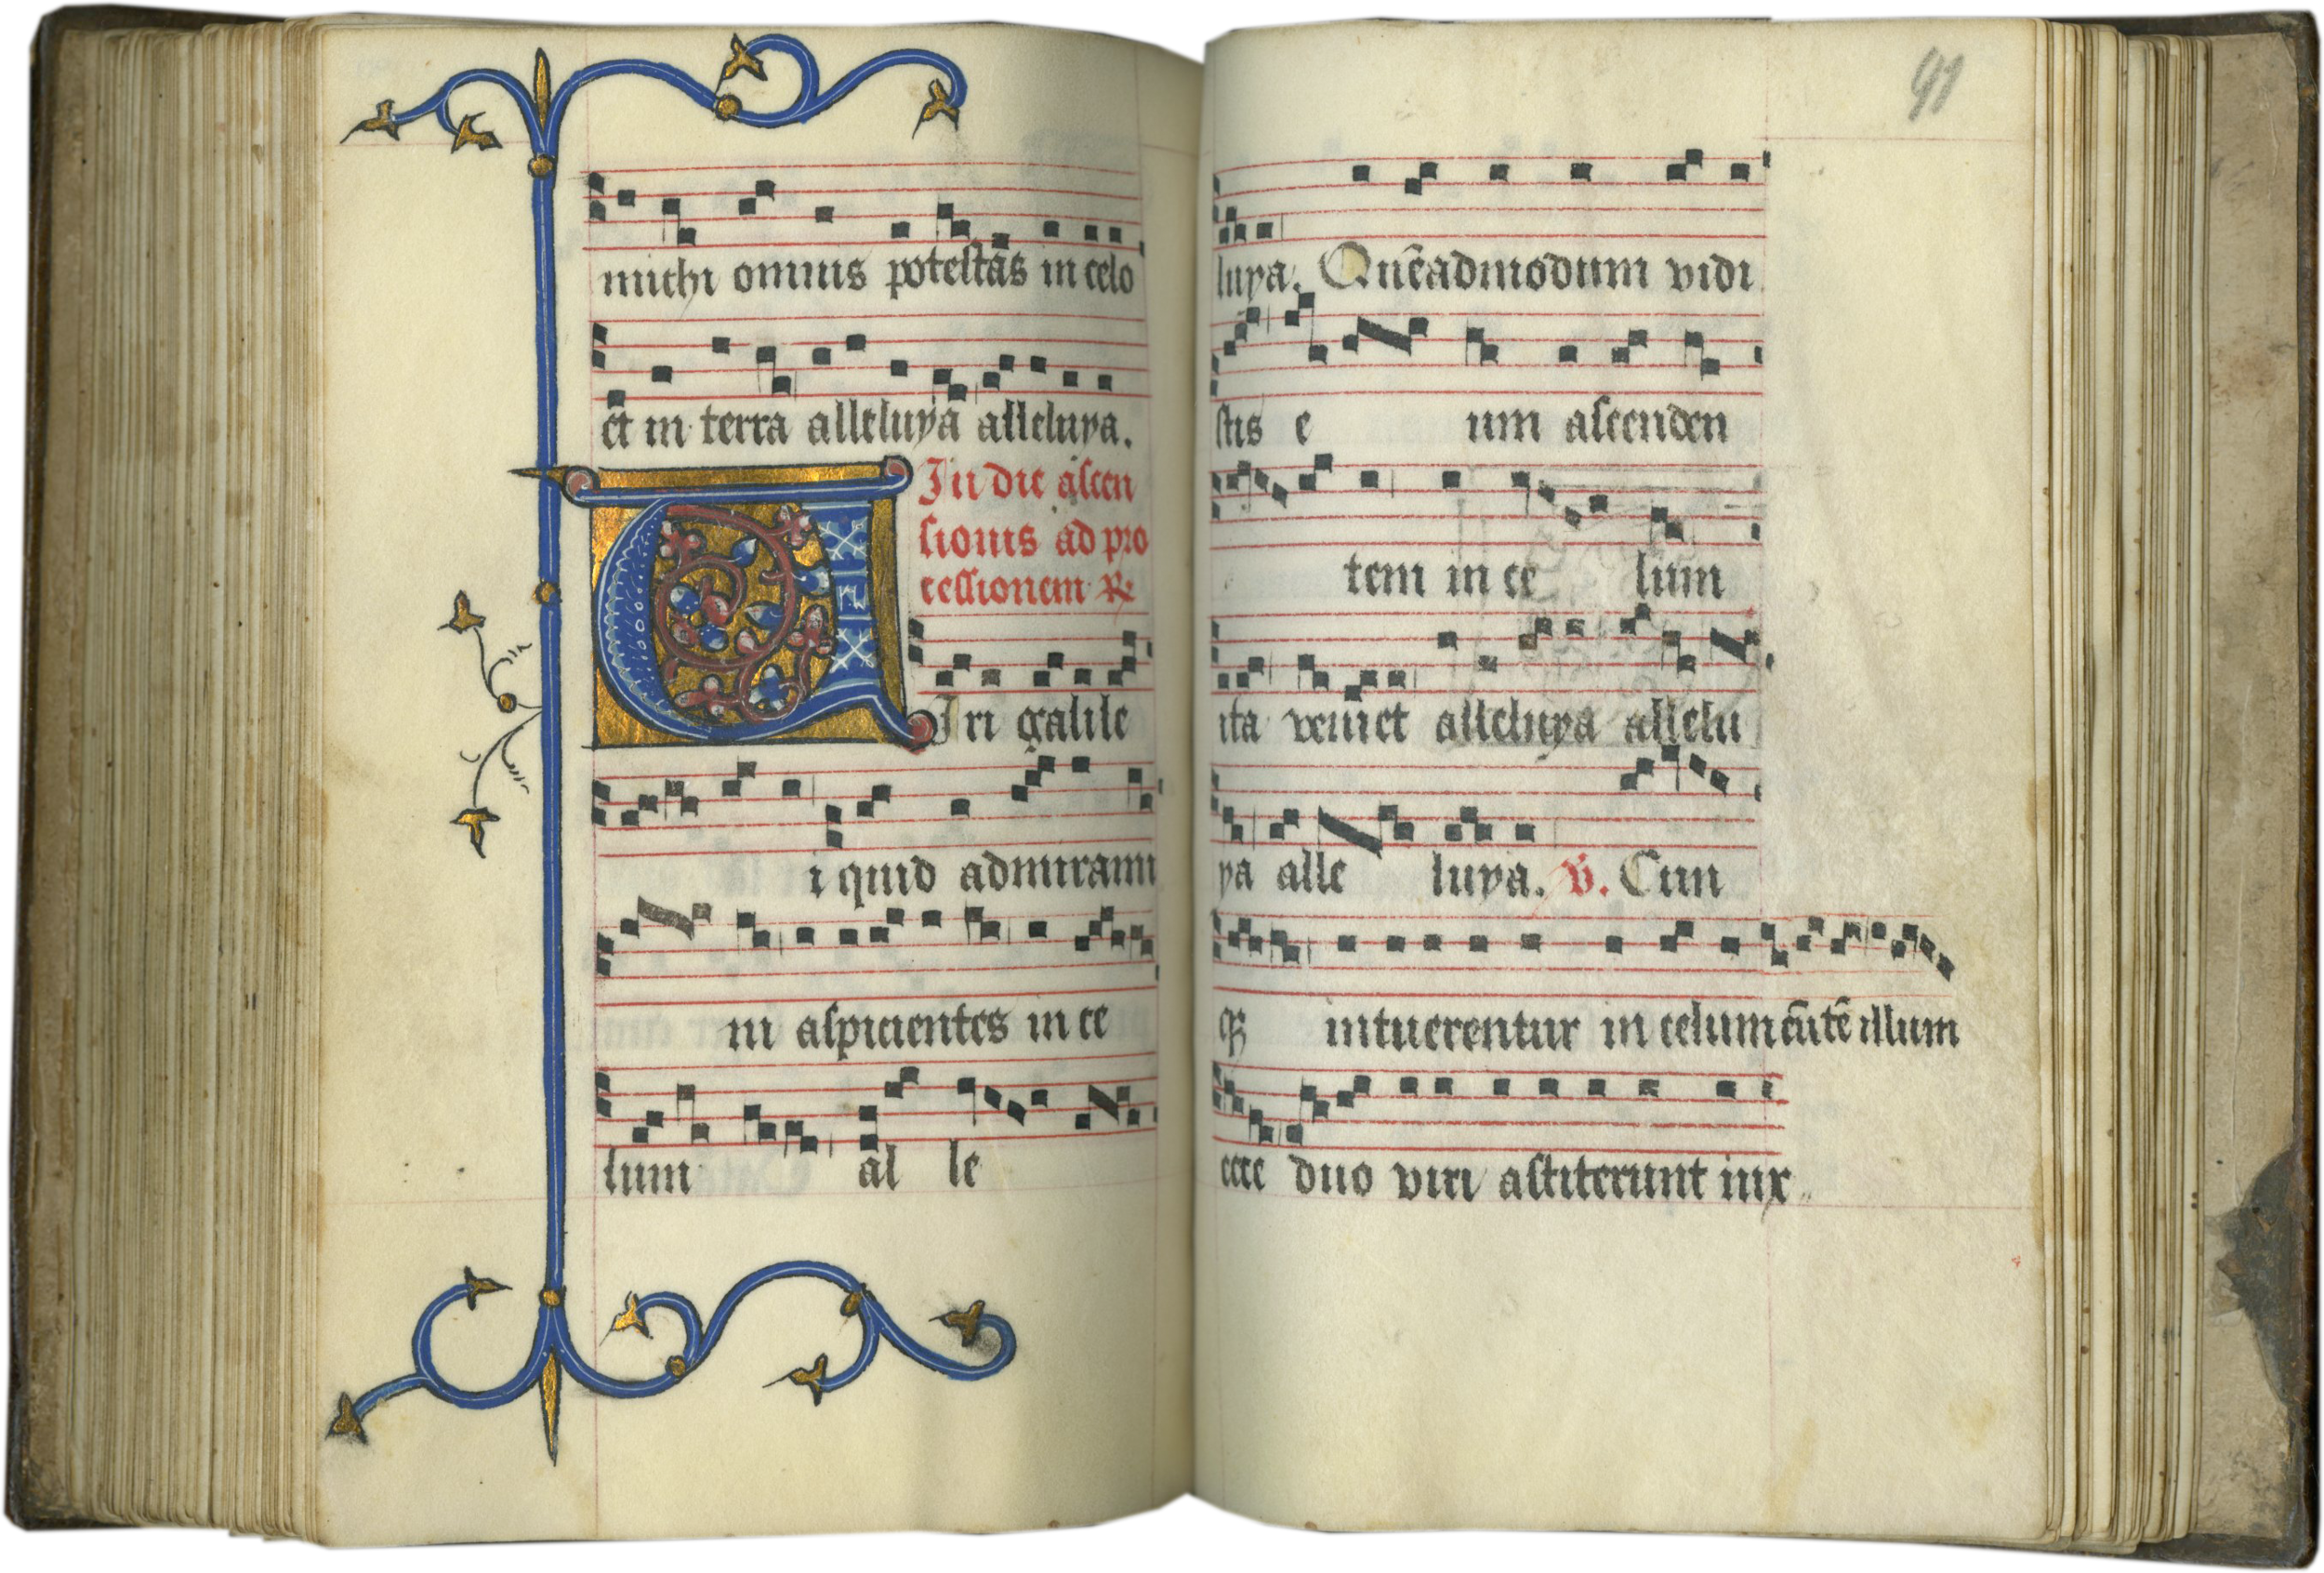 michi omnis potestas in celo
et in terra alleluya alleluya.
In die ascen
sionis ad pro
cessionem ℟
VIri galile
i quid admirami
ni aspicientes in ce
lum al le
91
luya. Quēadmodum vidi
stis e um ascenden
tem in ce lum
ita veniet alleluya allelu
ya alle luya. ℣. Cum
qꝫ intuerentur in celum eūtē illum
ecce duo viri astiterunt iux